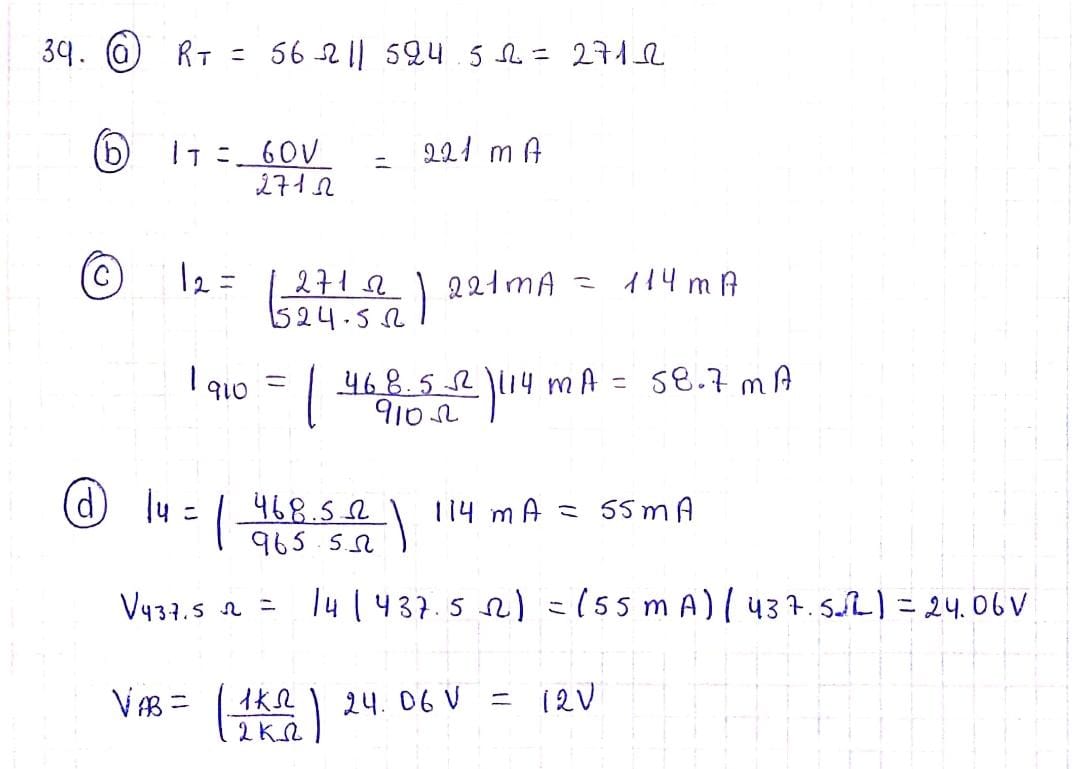 39. ⓐ RT = 56 Ω || 524.5 Ω = 271 Ω
ⓑ IT = 60V / 271 Ω = 221 mA
ⓒ I2 = (271 Ω / 524.5 Ω) 221 mA = 114 mA
I910 = (468.5 Ω / 910 Ω) 114 mA = 58.7 mA
ⓓ I4 = (468.5 Ω / 965.5 Ω) 114 mA = 55 mA
V437.5 Ω = I4 (437.5 Ω) = (55 mA) (437.5 Ω) = 24.06 V
VAB = (1KΩ / 2KΩ) 24.06 V = 12V